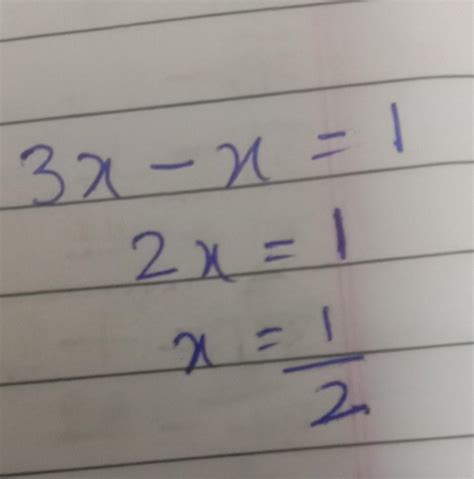 3x - x = 1
2x = 1
x = 1/2